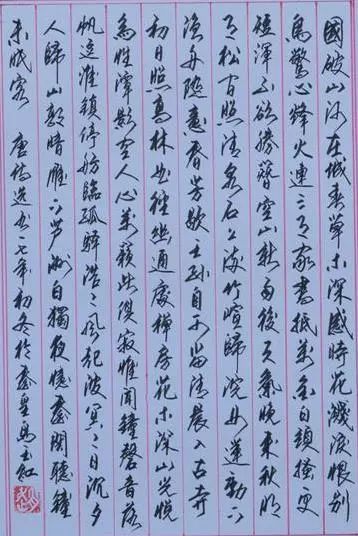 國破山河在城春草木深感時花濺淚恨別
鳥驚心烽火連三月家書抵萬金白頭搔更
短渾不欲勝簪空山新雨後天氣晚來秋明
月松間照清泉石上流竹喧歸浣女蓮動下
漁舟隨意春芳歇王孫自可留清晨入古寺
初日照高林曲徑幽通處禪房花木深山光悅
鳥性潭影空人心萬籟此俱寂惟聞鐘磬音落
帆逗淮鎮停舫臨孤驛浩〻風起波冥〻日沉夕
人歸山郭暗雁下蘆洲白獨夜憶秦關聽鐘
未眠客 唐詩選書一七年初冬於秦皇島玉紅